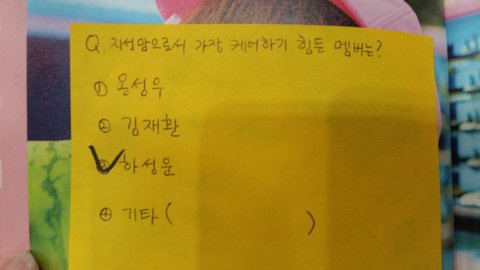 Q. 지성맘으로서 가장 케어하기 힘든 멤버는?
① 옹성우
② 김재환
③ 하성운
④ 기타 ( )